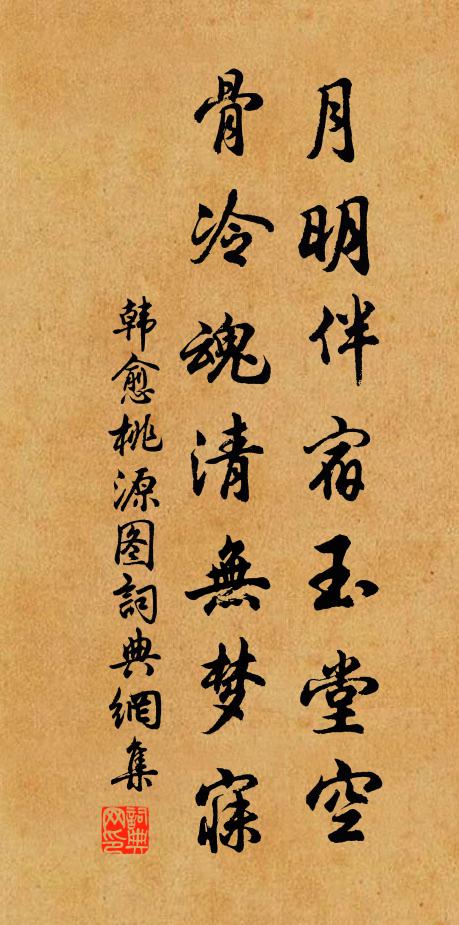 月明伴宿玉堂空
骨冷魂清無梦寐
韩愈桃源图詞典網集
詞典网印